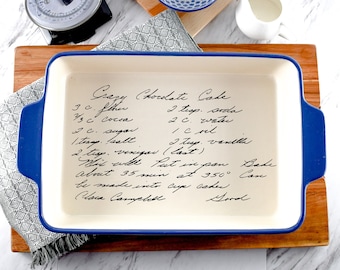 Crazy Chocolate Cake
3 C. flour 2 tsp. soda
2/3 C cocoa 2 C water
2 C. sugar 1 C oil
1 tsp salt 2 tsp. vanilla
2 tsp. vinegar (last)
Mix well Put in pan Bake
about 35 min at 350° Can
be made into cup cakes
Clara Campbell Good